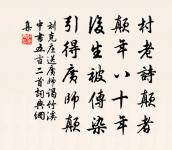 村老詩顛者
顛八十年
後生被傳染
引得廣師顛
劉克莊送廣師謁竹溪
中書五言二首詞典網
集